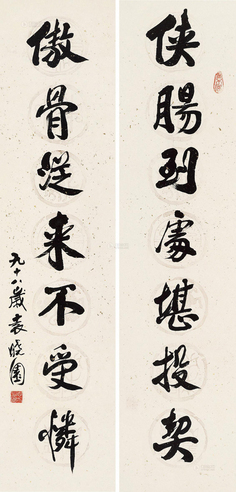 侠腸到處堪投契
傲骨從来不受憐
九十八歲袁曉園